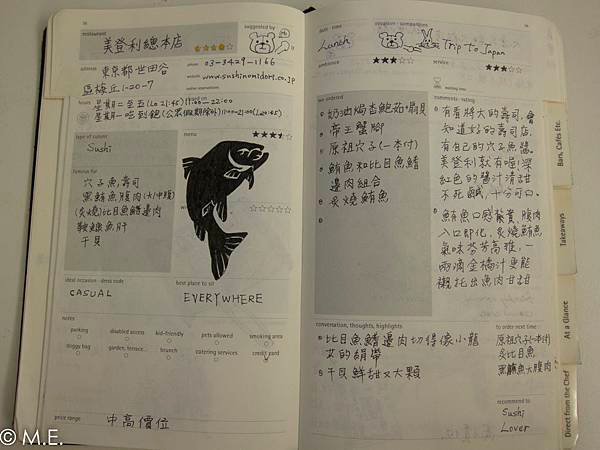 restaurant
美登利總本店
suggested by
address
東京都世田谷
區梅丘1-20-7
phone
03-3429-1166
website
www.sushinomidori.co.jp
online reservations
hours
星期二至五(Lo 21:45) 11:00-22:00
type of cuisine
Sushi
menu
famous for
穴子魚壽司
黑鮪魚腹肉(大/中腹)
(炙燒)比目魚鰭邊肉
鮟鱇魚肝
干貝
ideal occasion - dress code
CASUAL
best place to sit
EVERYWHERE
notes
parking
disabled access
kid-friendly
pets allowed
smoking area
doggy bag
garden, terrace...
brunch
catering services
credit card
price range
中高價位
date - time
Lunch
occasion - companions
Trip to Japan
ambience
service
waiting time
奶油焗杏鮑菇+扇貝
帝王蟹腳
原祖穴子(一本付)
鮪魚和比目魚鰭
邊肉組合
炙燒鮪魚
comments - rating
有看將太的壽司,會
知道好的壽司店
有自己的穴子魚醬。
美登利就有喔!深
紅色的醬汁清甜
不死鹹,十分可口。
鮪魚口感紮實,腹肉
入口即化,炙燒鮪魚
氣味芬芳高雅,一
兩滴金橘汁更能
襯托出魚肉甘甜
conversation, thoughts, highlights
比目魚鰭邊肉切得像小龍
女的絹帶
干貝鮮甜又大顆
to order next time
原祖穴子(一本付)
炙比目魚
黑鮪魚大腹肉
recommend to
Sushi
Lover
Bars, Cafés Etc.
Takeaways
At a Glance
Direct from the Chef
© M.E.